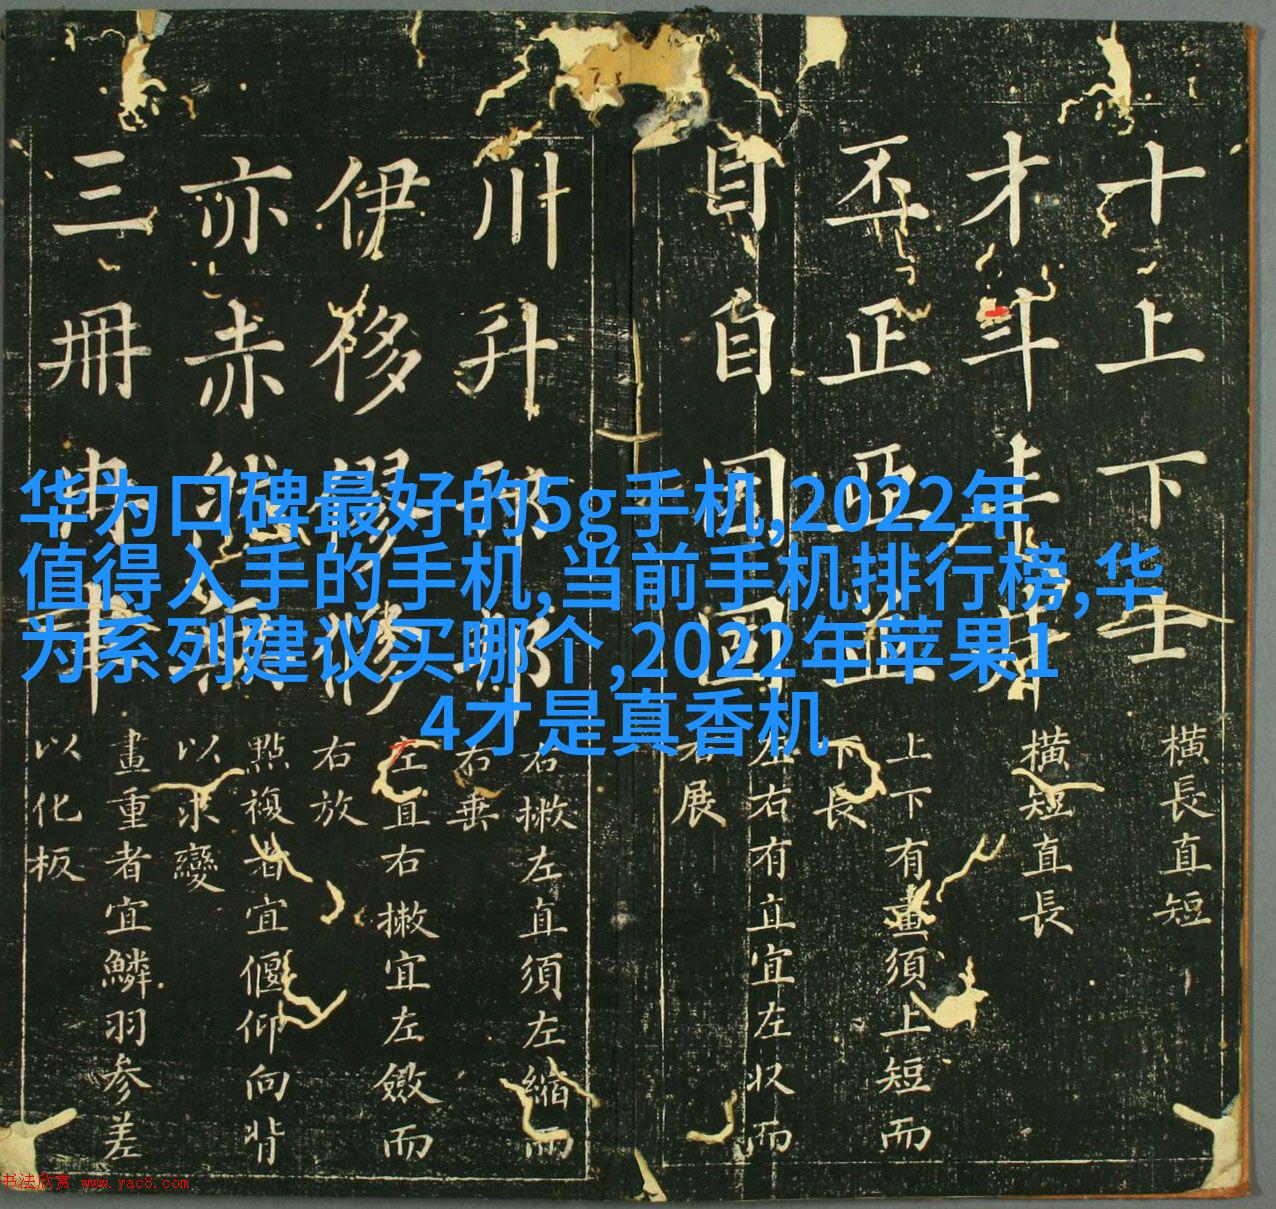 十上下士
横長直短
才斗
横短直長
丕正亞並
上下有畫須上短而
下長
目自
左右有直宜左收而
右展
川升
右撇左直須左縮而
右垂
伊侈
左直右撇宜左斂而
右放
亦赤
點複者宜偃仰向背
以求變
三冊冉
畫重者宜鱗羽參差
以化板
华为口碑最好的5g手机,2022年
值得入手的手机,当前手机排行榜,华
为系列建议买哪个,2022年苹果1
4才是真香机
书法欣赏 www.yac8.com